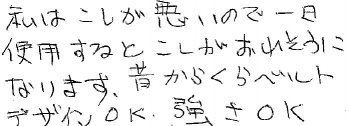 私はこしが悪いので一日
使用するとこしがおれそうに
なります、昔からくらべルト
デザインOK.強さOK